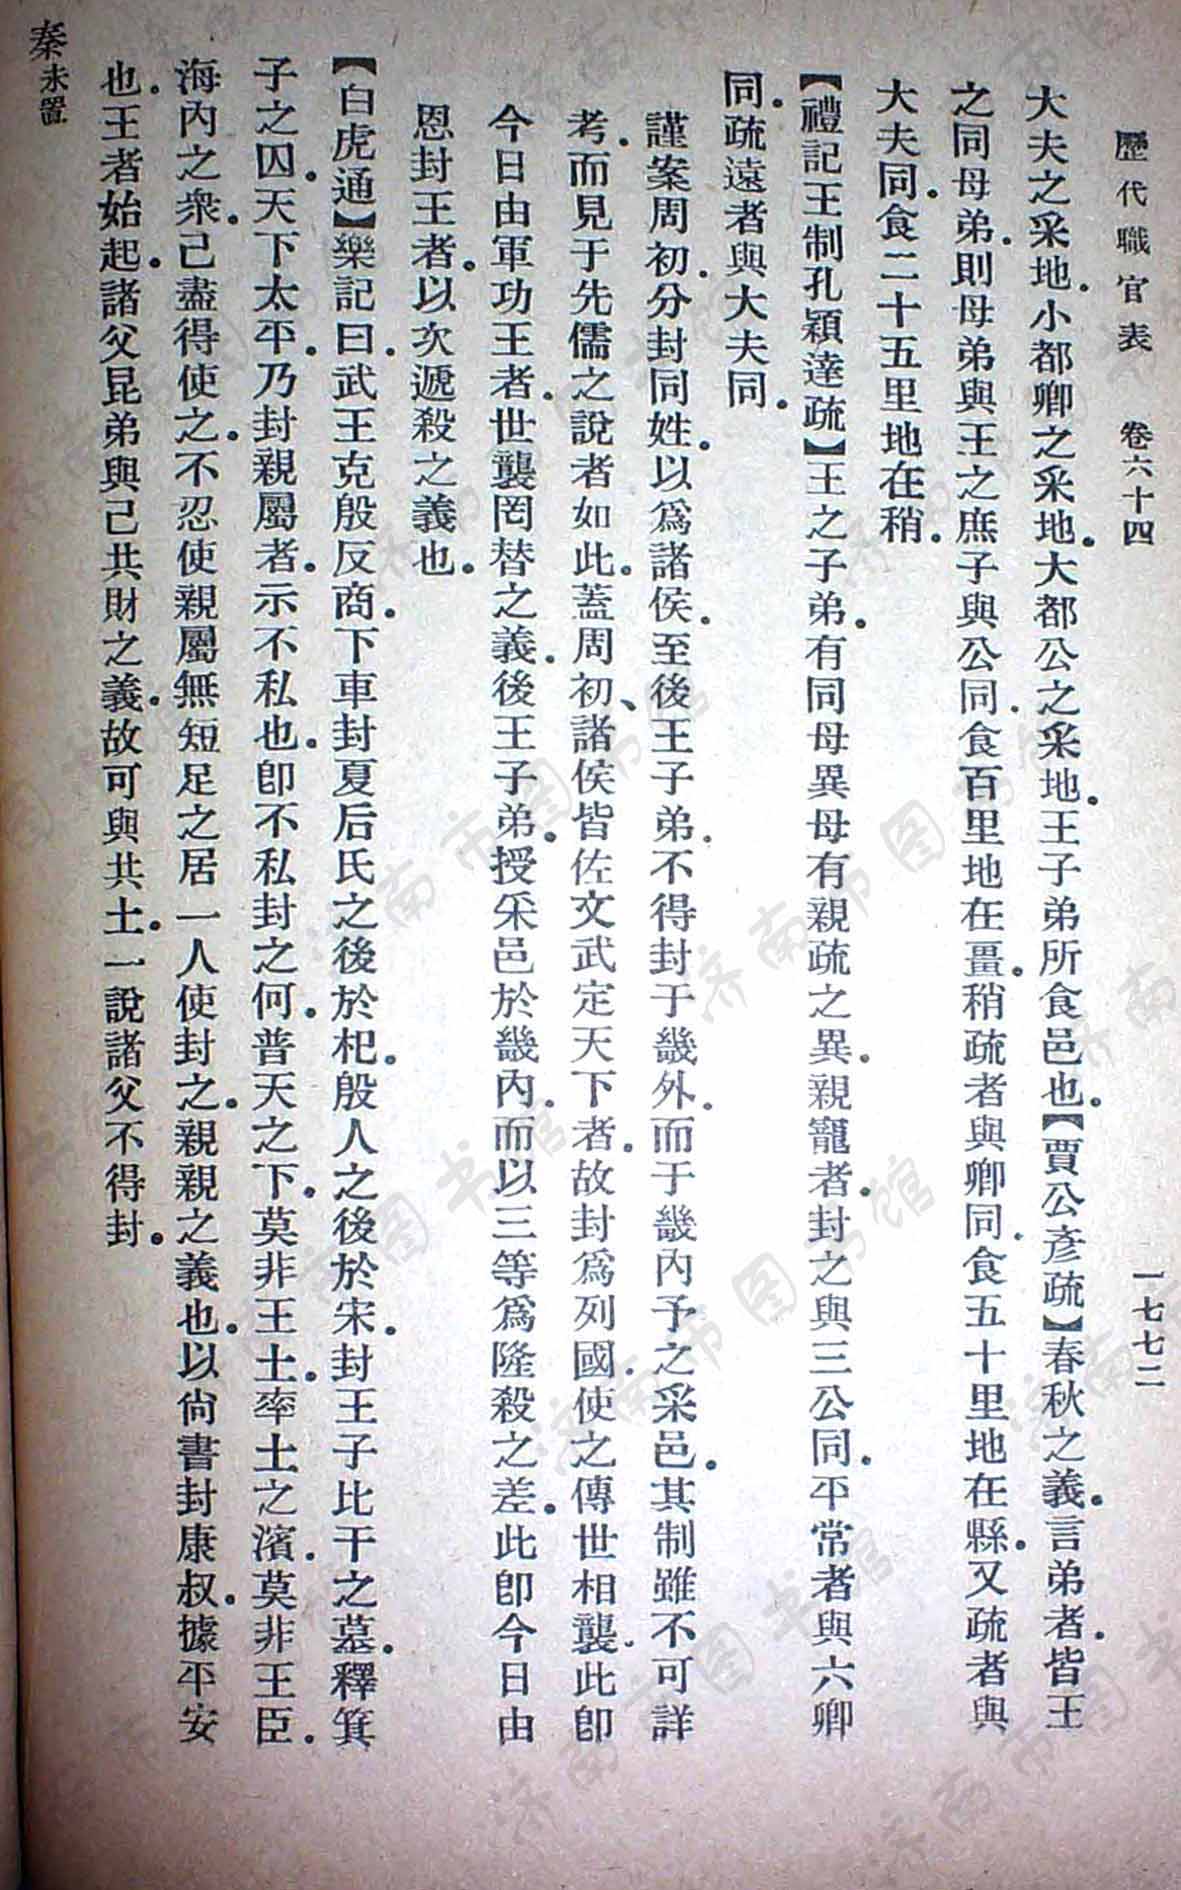 歷代職官表 卷六十四 一七七二
大夫之采地。小都卿之采地。大都公之采地。王子弟所食邑也。【賈公彥疏】春秋之義。言弟者。皆王
之同母弟。則母弟與王之庶子與公同。食百里地在畺。稍疏者與卿同。食五十里地在縣。又疏者與
大夫同。食二十五里地在稍。
【禮記王制孔穎達疏】王之子弟。有同母異母有親疏之異。親寵者。封之與三公同。平常者與六卿
同。疏遠者與大夫同。
謹案周初。分封同姓。以爲諸侯。至後王子弟。不得封于畿外。而于畿內予之采邑。其制雖不可詳
考。而見于先儒之說者如此。蓋周初、諸侯皆佐文武定天下者。故封爲列國。使之傳世相襲。此卽
今日由軍功王者。世襲罔替之義。後王子弟。授采邑於畿內。而以三等爲隆殺之差。此卽今日由
恩封王者。以次遞殺之義也。
【白虎通】樂記曰。武王克殷反商。下車封夏后氏之後於杞。殷人之後於宋。封王子比干之墓。釋箕
子之囚。天下太平。乃封親屬者。示不私也。卽不私封之何。普天之下。莫非王土。率土之濱。莫非王臣。
海內之衆。己盡得使之。不忍使親屬無短足之居一人使封之。親親之義也。以尙書封康叔。據平安
也。王者始起。諸父昆弟與己共財之義。故可與共土。一說諸父不得封。
秦未置
济南市图书馆